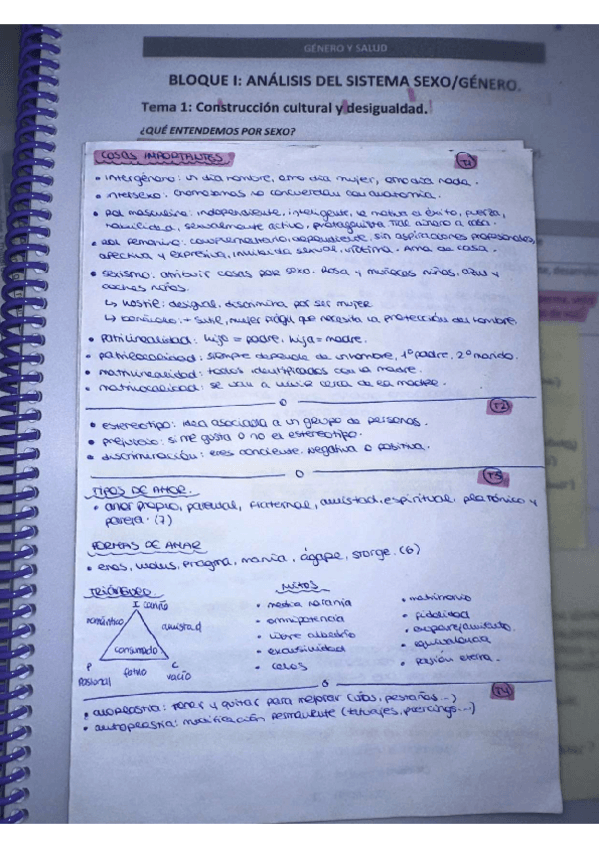 GÉNERO Y SALUD
BLOQUE I: ANÁLISIS DEL SISTEMA SEXO/GÉNERO.
Tema 1: Construcción cultural y desigualdad.
¿QUÉ ENTENDEMOS POR SEXO?
COSAS IMPORTANTES
T1
• intergénero: un día hombre, otro día mujer, otro día nada.
• intersexo: cromosomas no concuerdan con anatomía.
• rol masculino: independiente, inteligente, le motiva el éxito, fuerza,
habilidad, sexualmente activo, protagonista. Trae dinero a casa.
• rol femenino: complementario, dependiente, sin aspiraciones profesionales,
afectiva y expresiva, sexual, víctima. Ama de casa.
• sexismo: atribuir cosas por sexo. Rosa y muñecas niñas, azul y
coches niños.
↳ hostil: desigual, discrimina por ser mujer
↳ benévolo: + sutil, mujer frágil que necesita la protección del hombre.
• patrilinealidad: hijo = padre, hija = madre.
• patrilocalidad: siempre depende de un hombre, 1º padre, 2º marido.
• matrilinealidad: todos identificados con la madre.
• matrilocalidad: se van a vivir cerca de la madre.
T2
• estereotipo: idea asociada a un grupo de personas.
• prejuicio: si me gusta o no el estereotipo.
• discriminación: eres conciente. Negativa o positiva.
T3
TIPOS DE AMOR.
• amor propio, parental, fraternal, amistad, espiritual, platónico y
pareja. (7)
FORMAS DE AMAR
• eros, ludus, pragma, manía, ágape, storge. (6)
TRIÁNGULO
I cariño
romántico
amistad
consumado
P
pasional
fatuo
C
vacío
MITOS
• media naranja
• omnipotencia
• libre albedrío
• exclusividad
• celos
• matrimonio
• fidelidad
• emparejamiento
• equivalencia
• pasión eterna.
T4
• : poner y quitar para mejorar (uñas, pestañas...)
• autoplastia: modificación permanente (tatuajes, piercings...)